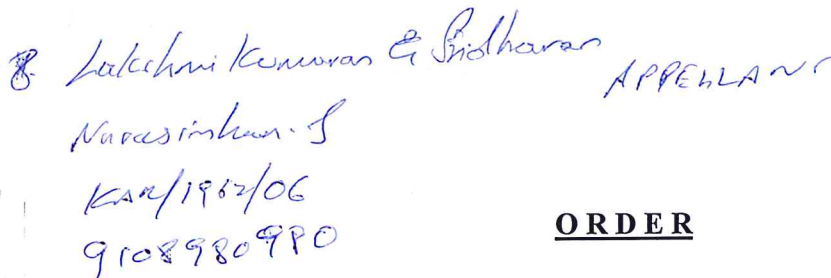 Lakshmi Kumaran & Sridharan
APPELLANT
Narasimhan. S
KAR/1962/06
9108980980
ORDER